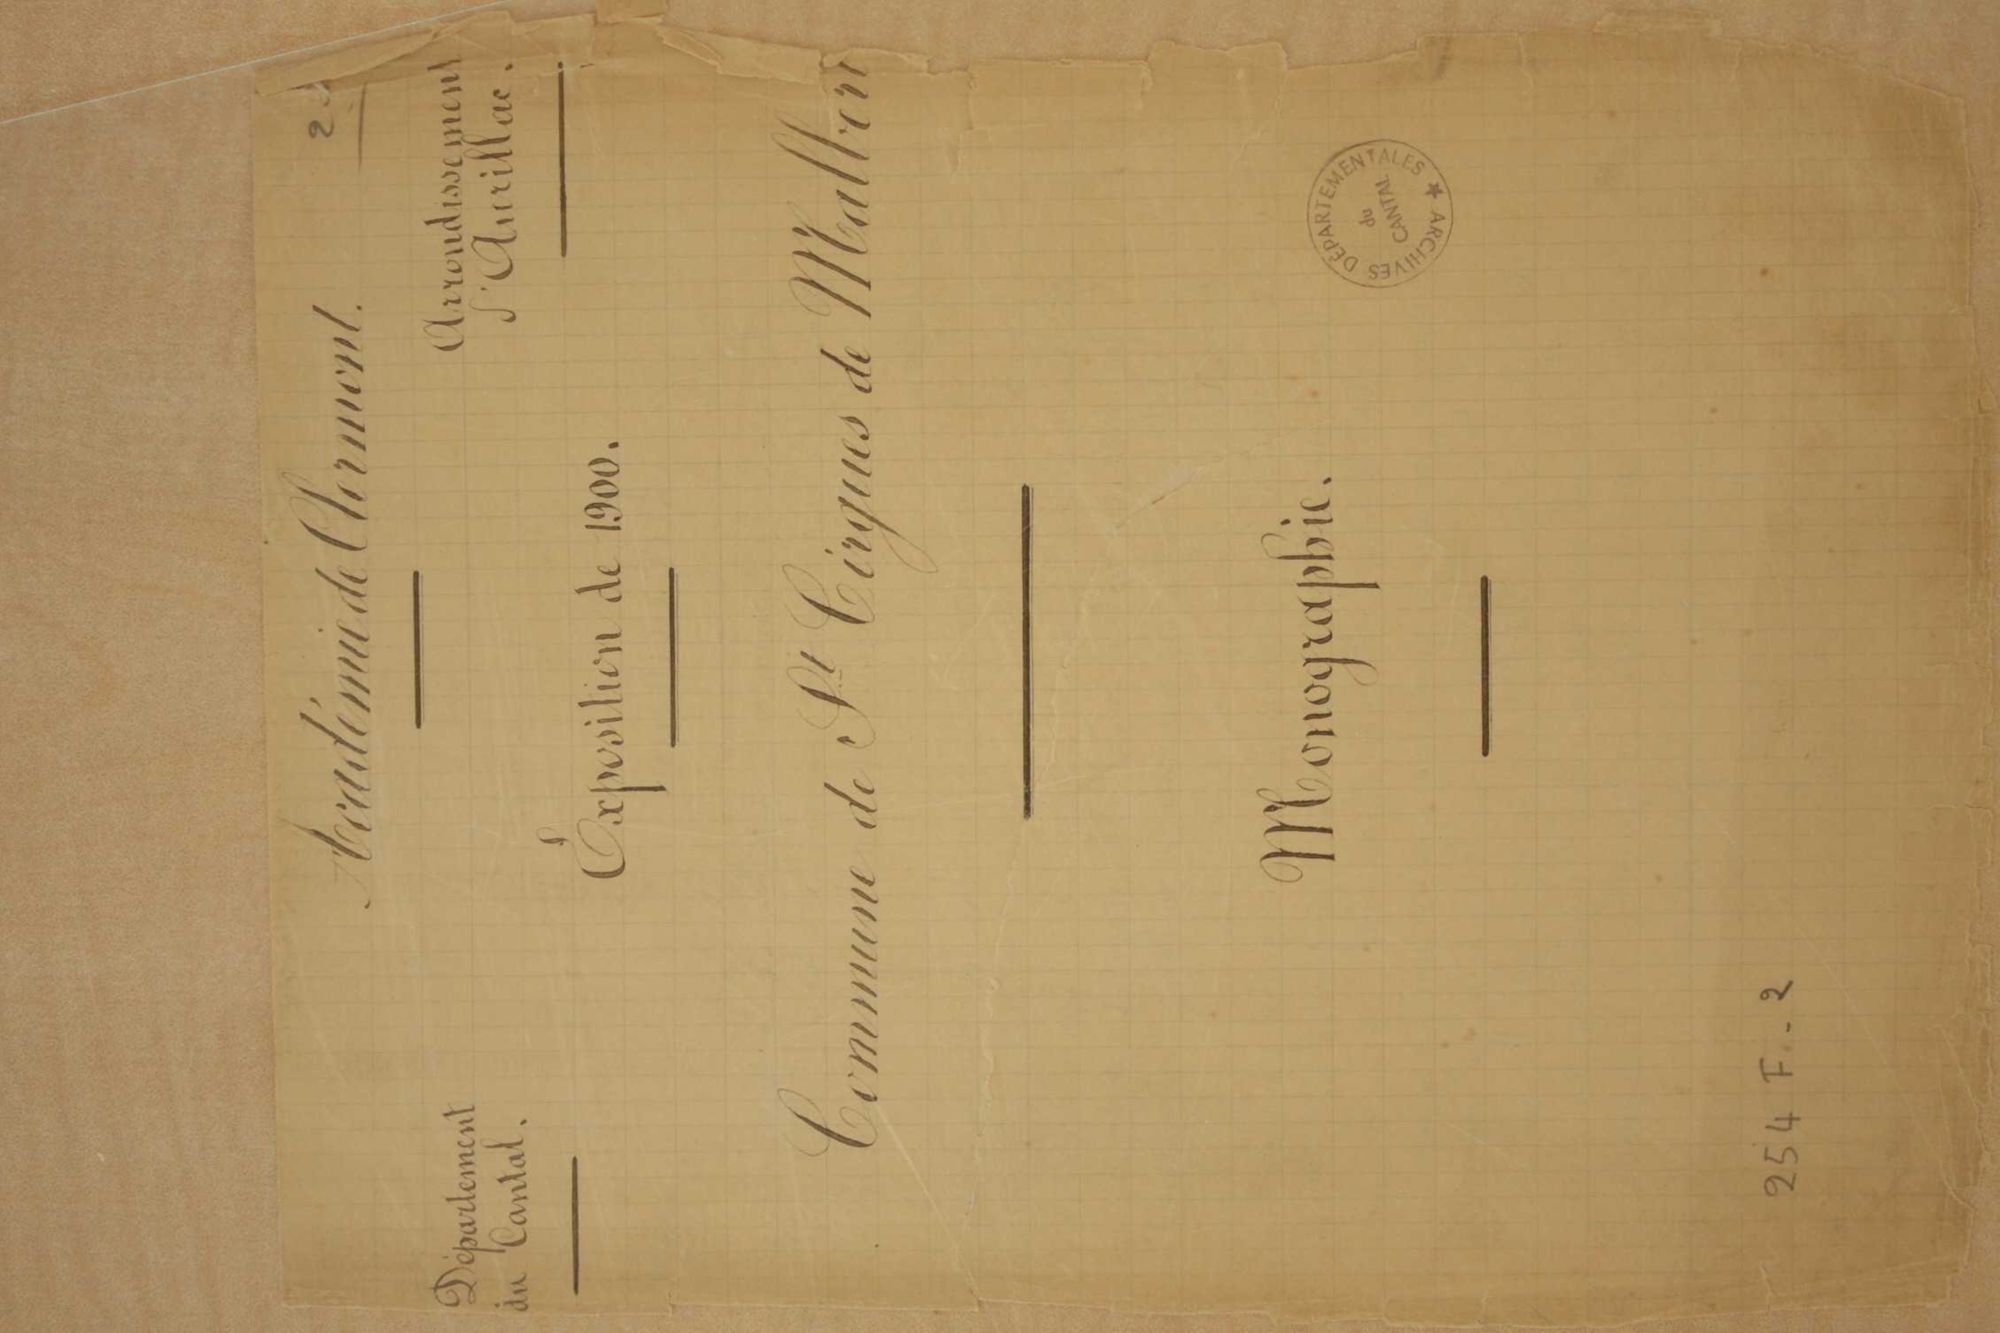 Académie de Clermont.
Département
du Cantal.
Arrondissement
d'Aurillac.
Exposition de 1900.
Commune de St Cirgues de Malbert
Monographie.
ARCHIVES DÉPARTEMENTALES
du
CANTAL
254 F - 2